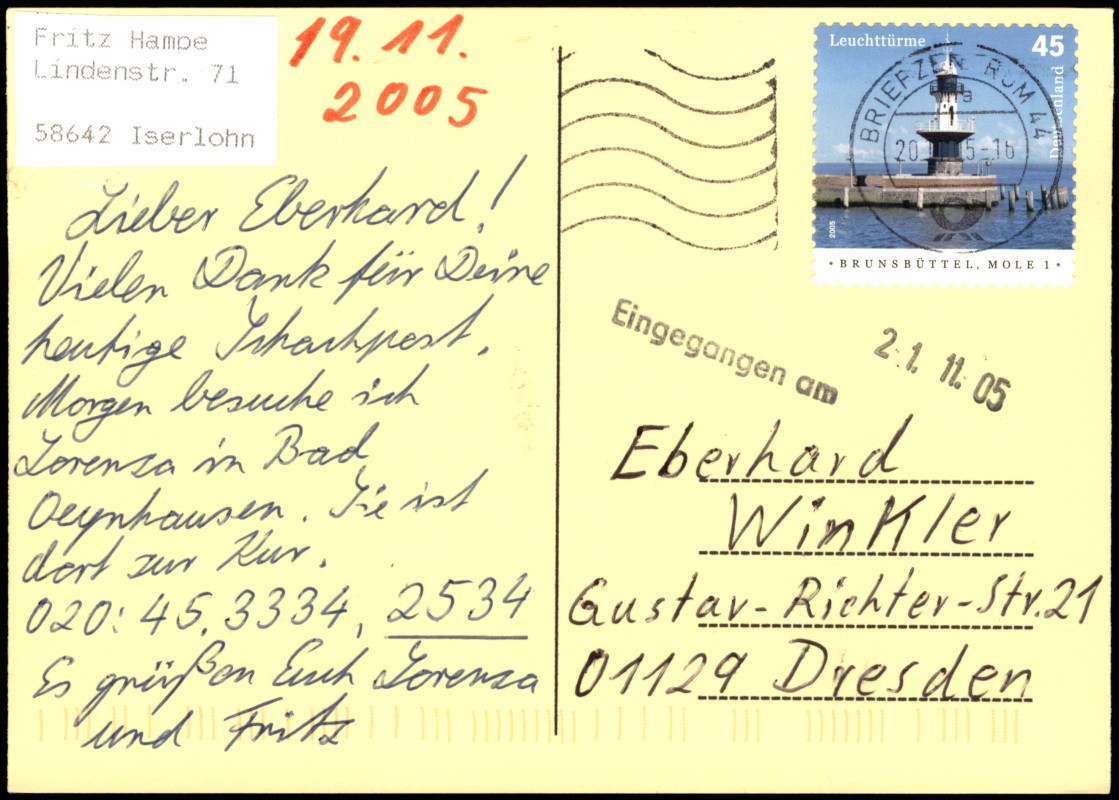 Fritz Hampe
Lindenstr. 71
58642 Iserlohn
19.11.
2005
Lieber Eberhard!
Vielen Dank für Deine
heutige Schachpost.
Morgen besuche ich
Lorenza in Bad
Oeynhausen. Sie ist
dort zur Kur.
020: 45.3334, 2534
Es grüßen Euch Lorenza
und Fritz
Leuchttürme 45
Deutschland
2005
BRUNSBÜTTEL, MOLE 1
BRIEFZENTRUM 44
Eingegangen am 21. 11. 05
Eberhard
Winkler
Gustav-Richter-Str. 21
01129 Dresden